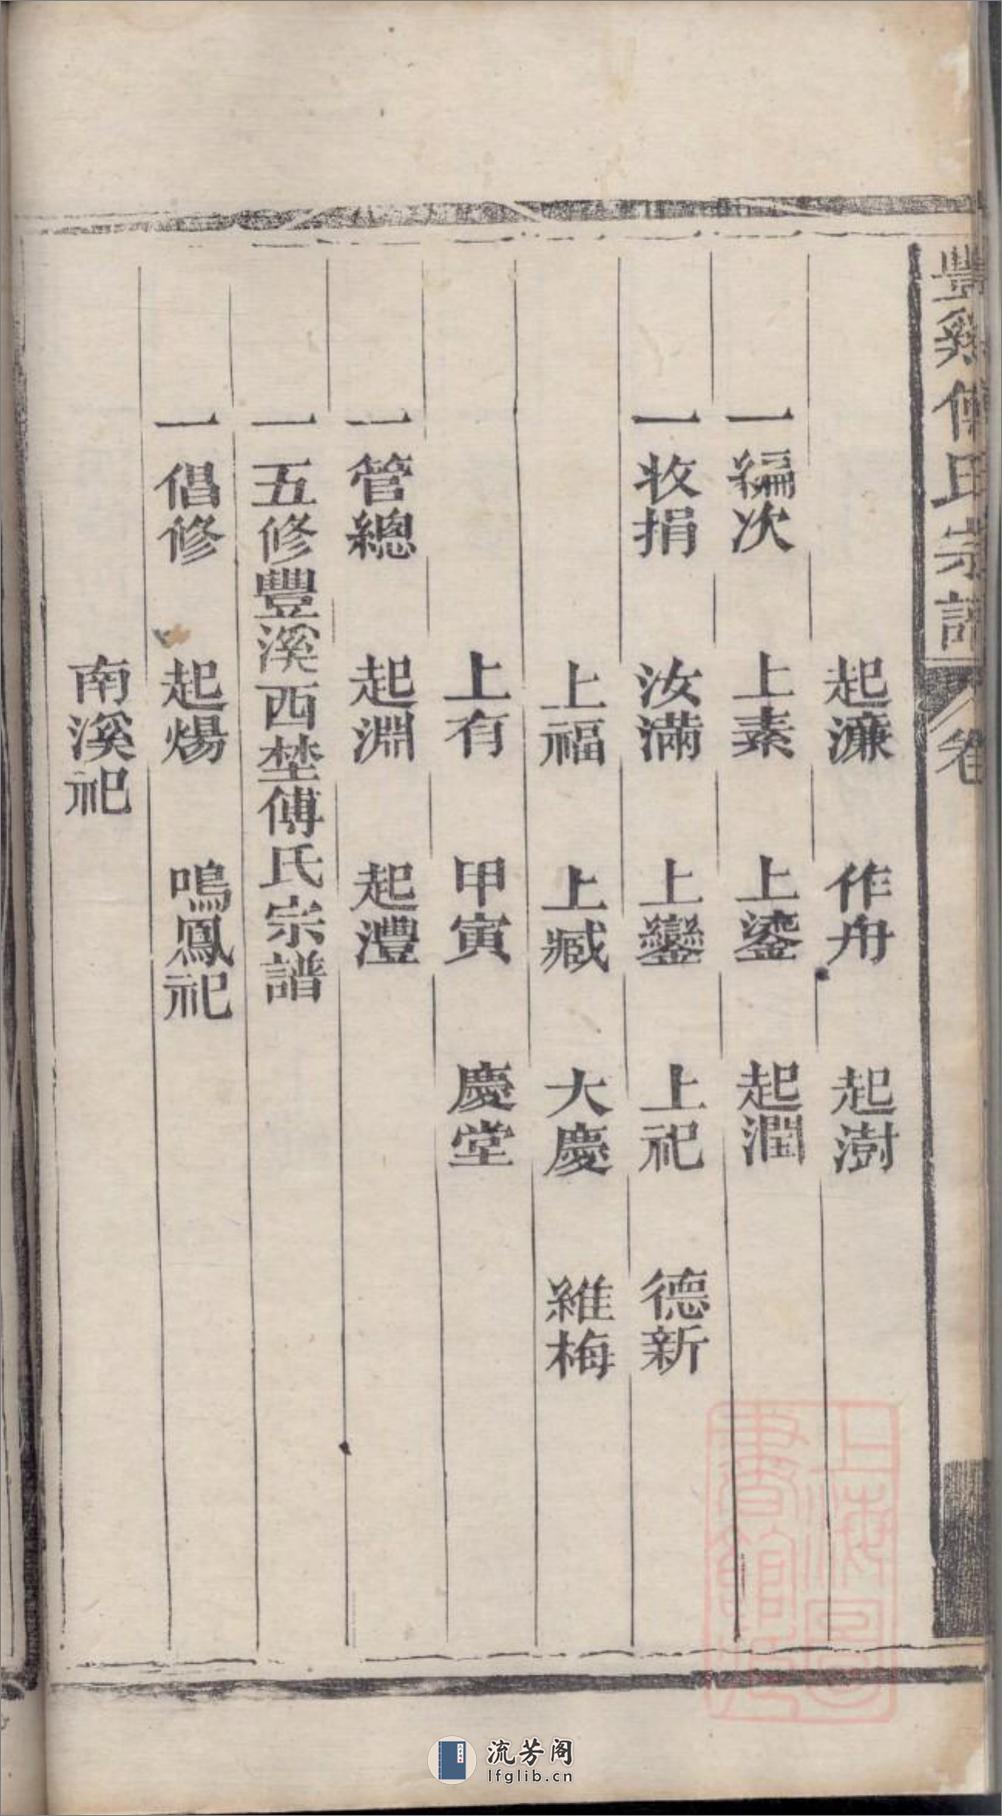 豐溪傅氏宗譜 卷
起濂 作舟 起澍
一編次 上素 上鎏 起潤
一收捐 汝滿 上鑾 上祀 德新
上福 上臧 大慶 維梅
上有 甲寅 慶堂
一管總 起淵 起灃
一五修豐溪西埜傅氏宗譜
一倡修 起煬 鳴鳳祀
南溪祀
上海圖書館藏
流芳阁
lfglib.cn